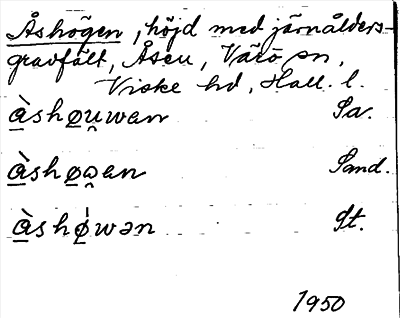 Åshögen, höjd med järnålders-
gravfält, Åsen, Värö sn,
Viske hd, Hall. l.
å̲̀shø̲u̯wen Sa.
å̲̀shø̲ə̯en Sand.
å̲̀shǿ̲wən St.
1950